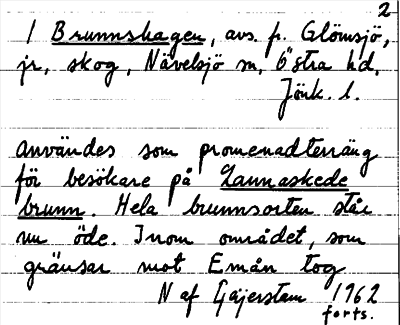 2
1 Brunnshagen, avs. fr. Glömsjö,
jr, skog, Nävelsjö sn, Östra hd,
Jönk. l.
Användes som promenadterräng
för besökare på Lannaskede
brunn. Hela brunnsorten står
nu öde. Inom området, som
gränsar mot Emån tog
N af Gejerstam 1962
forts.